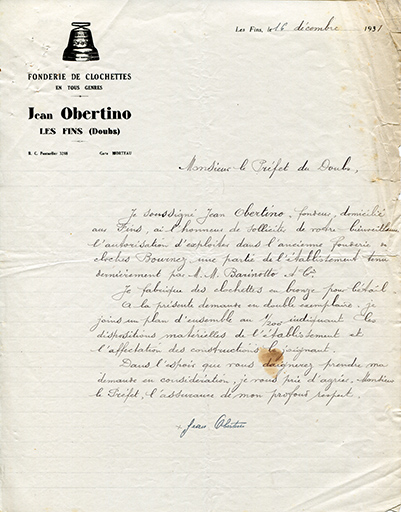 Les Fins, le 16 décembre 1931
FONDERIE DE CLOCHETTES
EN TOUS GENRES
Jean Obertino
LES FINS (Doubs)
R. C. Pontarlier 3288 Gare MORTEAU
Monsieur le Préfet du Doubs,
Je soussigné Jean Obertino, fondeur, domicilié
aux Fins, ai l'honneur de solliciter de votre bienveillance
l'autorisation d'exploiter dans l'ancienne fonderie de
cloches Bournez une partie de l'établissement tenu
dernièrement par M. M. Barinotto & Cie
Je fabrique des clochettes en bronze pour bétail
A la présente demande en double exemplaire, je
joins un plan d'ensemble au 1/200 indiquant les
dispositions matérielles de l'établissement et
l'affectation des constructions le joignant.
Dans l'espoir que vous daignerez prendre ma
demande en considération, je vous prie d'agréer, Monsieur
le Préfet, l'assurance de mon profond respect.
Jean Obertino